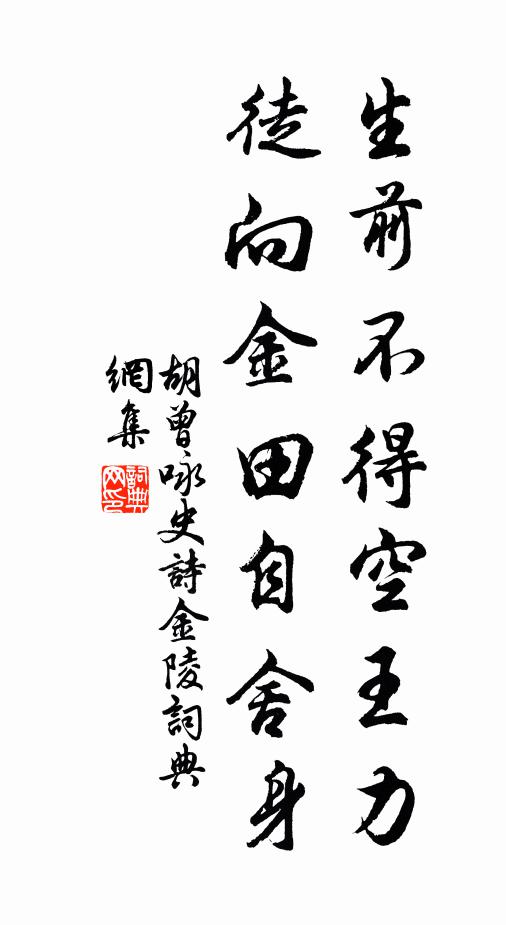 生前不得空王力
徒向金田自舍身
胡曾咏史詩金陵詞典
網集
詞典
网印